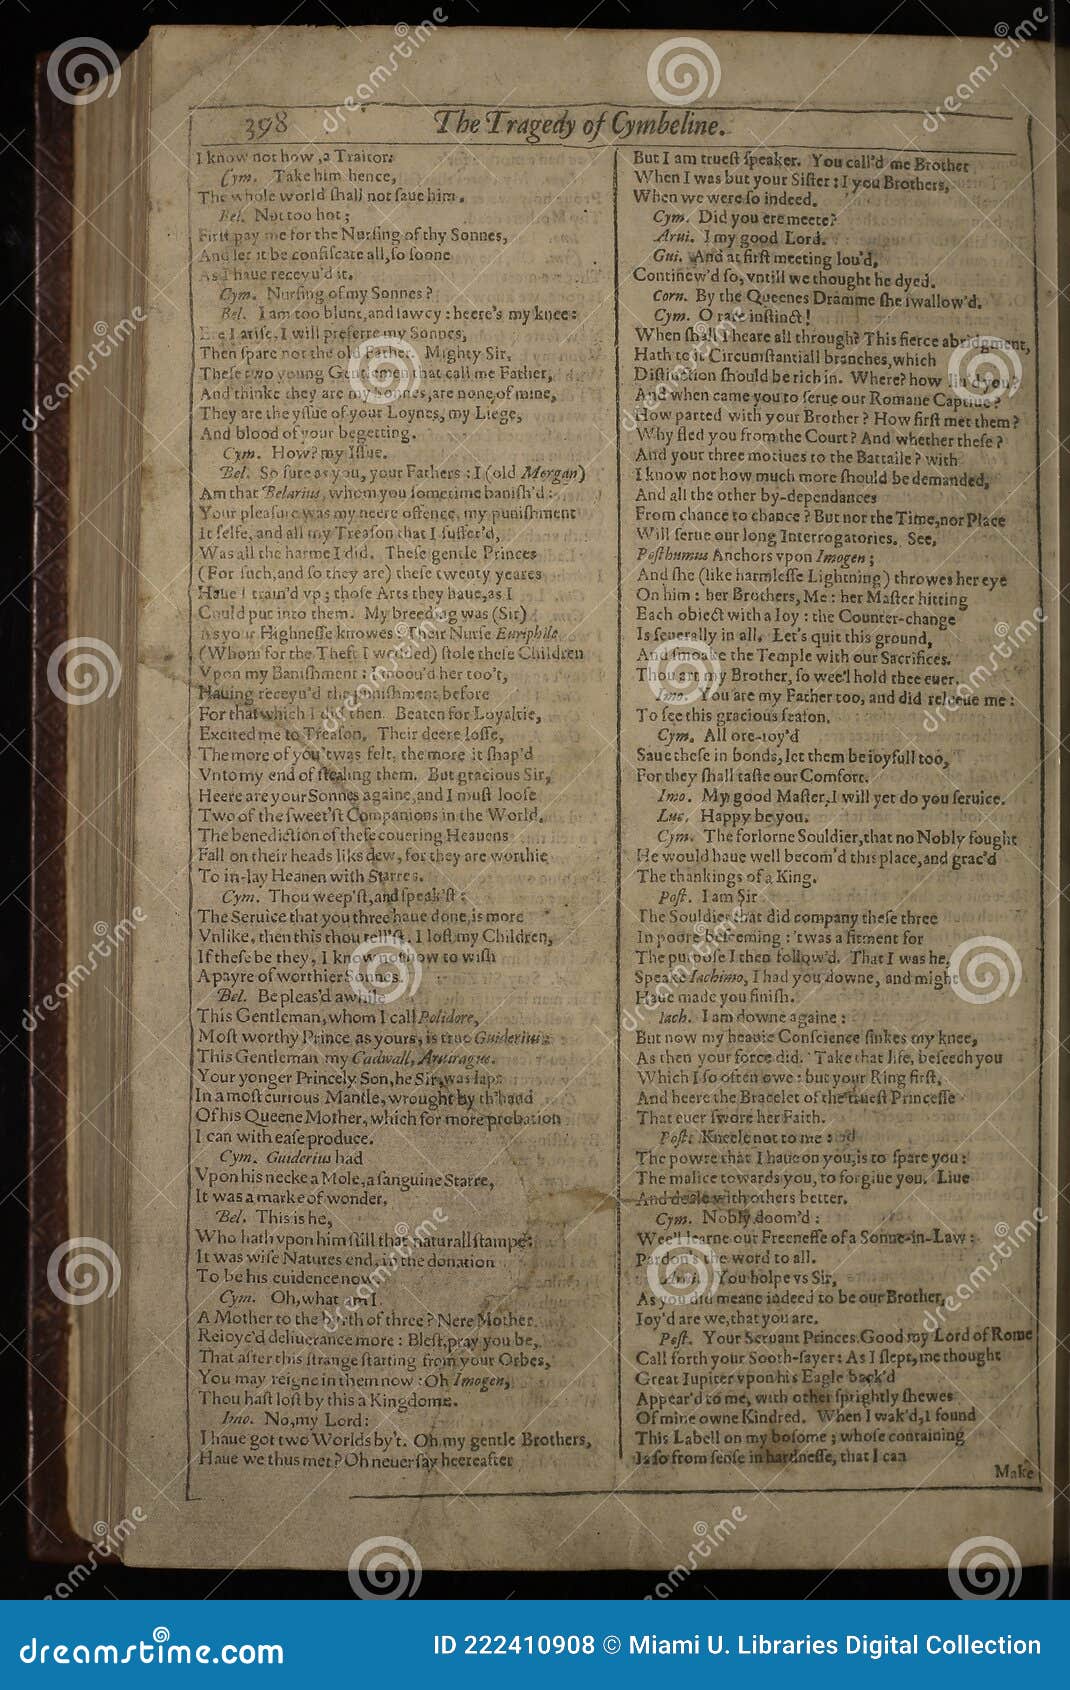 398
The Tragedy of Cymbeline.
I know not how, a Traitor.
Cym. Take him hence,
The whole world ſhall not ſaue him.
Bel. Not too hot;
Firſt pay me for the Nurſing of thy Sonnes,
And let it be confiſcate all, ſo ſoone
As I haue receyu'd it.
Cym. Nurſing of my Sonnes?
Bel. I am too blunt, and ſawcy: heere's my knee:
Ere I ariſe, I will preferre my Sonnes,
Then ſpare not the old Father. Mighty Sir,
Theſe two young Gentlemen that call me Father,
And thinke they are my Sonnes, are none of mine,
They are the yſſue of your Loynes, my Liege,
And blood of your begetting.
Cym. How? my Iſſue.
Bel. So ſure as you, your Fathers: I (old Morgan)
Am that Belarius, whom you ſometime baniſh'd:
Your pleaſure was my neere offence, my puniſhment
It ſelfe, and all my Treaſon that I ſuffer'd,
Was all the harme I did. Theſe gentle Princes
(For ſuch, and ſo they are) theſe twenty yeares
Haue I train'd vp; thoſe Arts they haue, as I
Could put into them. My breeding was (Sir)
As your Highneſſe knowes: Their Nurſe Euriphile
(Whom for the Theft I wedded) ſtole theſe Children
Vpon my Baniſhment: I moou'd her too't,
Hauing receyu'd the puniſhment before
For that which I did then. Beaten for Loyaltie,
Excited me to Treaſon. Their deere loſſe,
The more of you 'twas felt, the more it ſhap'd
Vnto my end of ſtealing them. But gracious Sir,
Heere are your Sonnes againe, and I muſt looſe
Two of the ſweet'ſt Companions in the World.
The benediction of theſe couering Heauens
Fall on their heads liks dew, for they are worthie
To in-lay Heauen with Starres.
Cym. Thou weep'ſt, and ſpeak'ſt:
The Seruice that you three haue done, is more
Vnlike, then this thou tell'ſt. I loſt my Children,
If theſe be they, I know not how to wiſh
A payre of worthier Sonnes.
Bel. Be pleas'd awhile
This Gentleman, whom I call Polidore,
Moſt worthy Prince, as yours, is true Guiderius:
This Gentleman, my Cadwall, Aruiragus.
Your yonger Princely Son, he Sir, was lap'd
In a moſt curious Mantle, wrought by th'hand
Of his Queene Mother, which for more probation
I can with eaſe produce.
Cym. Guiderius had
Vpon his necke a Mole, a ſanguine Starre,
It was a marke of wonder.
Bel. This is he,
Who hath vpon him ſtill that naturall ſtampe:
It was wiſe Natures end, in the donation
To be his euidence now.
Cym. Oh, what am I
A Mother to the byrth of three? Nere Mother
Reioyc'd deliuerance more: Bleſt, pray you be,
That after this ſtrange ſtarting from your Orbes,
You may reigne in them now: Oh Imogen,
Thou haſt loſt by this a Kingdome.
Imo. No, my Lord:
I haue got two Worlds by't. Oh my gentle Brothers,
Haue we thus met? Oh neuer ſay heereafter
But I am trueſt ſpeaker. You call'd me Brother
When I was but your Siſter: I you Brothers,
When we were ſo indeed.
Cym. Did you ere meete?
Arui. I my good Lord.
Gui. And at firſt meeting lou'd,
Continew'd ſo, vntill we thought he dyed.
Corn. By the Queenes Dramme ſhe ſwallow'd.
Cym. O rare inſtinct!
When ſhall I heare all through? This fierce abridgment,
Hath to it Circumſtantiall branches, which
Diſtinction ſhould be rich in. Where? how liu'd you?
And when came you to ſerue our Romane Captiue?
How parted with your Brother? How firſt met them?
Why fled you from the Court? And whether theſe?
And your three motiues to the Battaile? with
I know not how much more ſhould be demanded,
And all the other by-dependances
From chance to chance? But nor the Time, nor Place
Will ſerue our long Interrogatories. See,
Poſthumus Anchors vpon Imogen;
And ſhe (like harmleſſe Lightning) throwes her eye
On him: her Brothers, Me: her Maſter hitting
Each obiect with a Ioy: the Counter-change
Is ſeuerally in all. Let's quit this ground,
And ſmoake the Temple with our Sacrifices.
Thou art my Brother, ſo wee'l hold thee euer.
Imo. You are my Father too, and did releeue me:
To ſee this gracious ſeaſon.
Cym. All ore-ioy'd
Saue theſe in bonds, let them be ioyfull too,
For they ſhall taſte our Comfort.
Imo. My good Maſter, I will yet do you ſeruice.
Luc. Happy be you.
Cym. The forlorne Souldier, that no Nobly fought
He would haue well becom'd this place, and grac'd
The thankings of a King.
Poſt. I am Sir
The Souldier that did company theſe three
In poore beſeeming: 'twas a fitment for
The purpoſe I then follow'd. That I was he,
Speake Iachimo, I had you downe, and might
Haue made you finiſh.
Iach. I am downe againe:
But now my heauie Conſcience ſinkes my knee,
As then your force did. Take that life, beſeech you
Which I ſo often owe: but your Ring firſt,
And heere the Bracelet of the trueſt Princeſſe
That euer ſwore her Faith.
Poſt. Kneele not to me:
The powre that I haue on you, is to ſpare you:
The malice towards you, to forgiue you. Liue
And deale with others better.
Cym. Nobly doom'd:
Wee'l learne our Freeneſſe of a Sonne-in-Law:
Pardon's the word to all.
Arui. You holpe vs Sir,
As you did meane indeed to be our Brother,
Ioy'd are we, that you are.
Poſt. Your Seruant Princes. Good my Lord of Rome
Call forth your Sooth-ſayer: As I ſlept, me thought
Great Iupiter vpon his Eagle back'd
Appear'd to me, with other ſprightly ſhewes
Of mine owne Kindred. When I wak'd, I found
This Labell on my boſome; whoſe containing
Is ſo from ſenſe in hardneſſe, that I can
Make
dreamstime.com
ID 222410908 © Miami U. Libraries Digital Collection